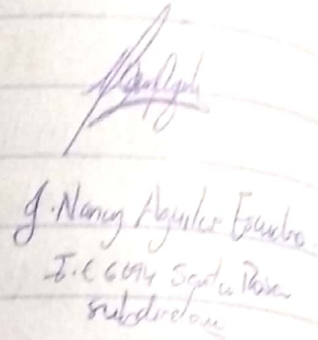 J. Nancy Aguilar Escudero
I.E 6094 Santa Rosa
subdirectora